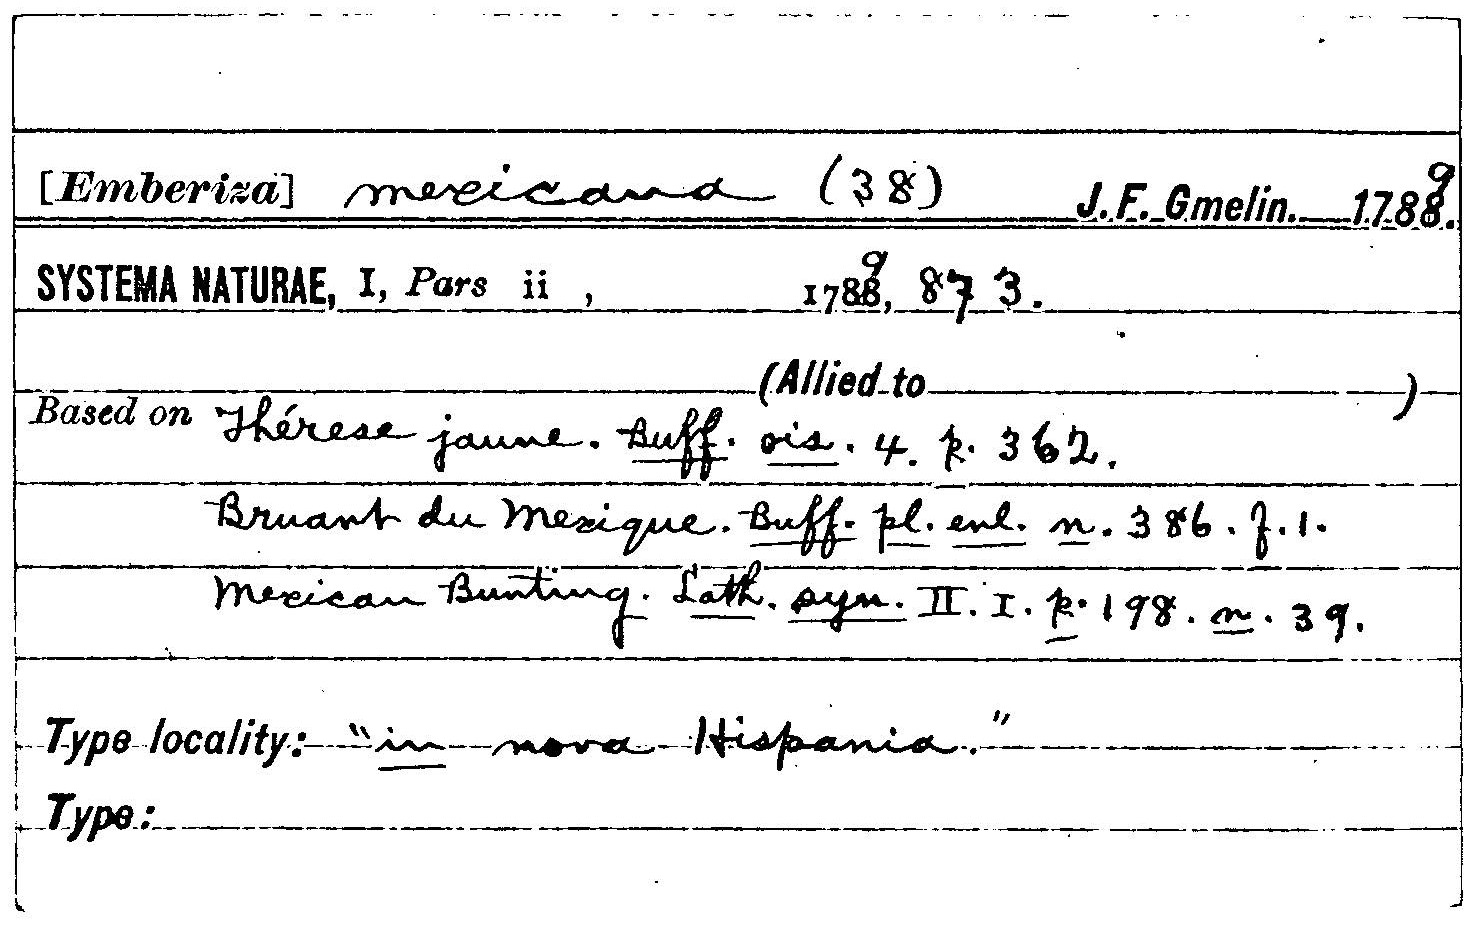 [Emberiza] mexicana (38) J. F. Gmelin. 1789.
SYSTEMA NATURAE, I, Pars ii , 1789, 873.
(Allied to )
Based on Thérese jaune. Buff. ois. 4. p. 362.
Bruant du Mexique. Buff. pl. enl. n. 386. f. 1.
Mexican Bunting. Lath. syn. II. I. p. 198. n. 39.
Type locality: "in nova Hispania."
Type: